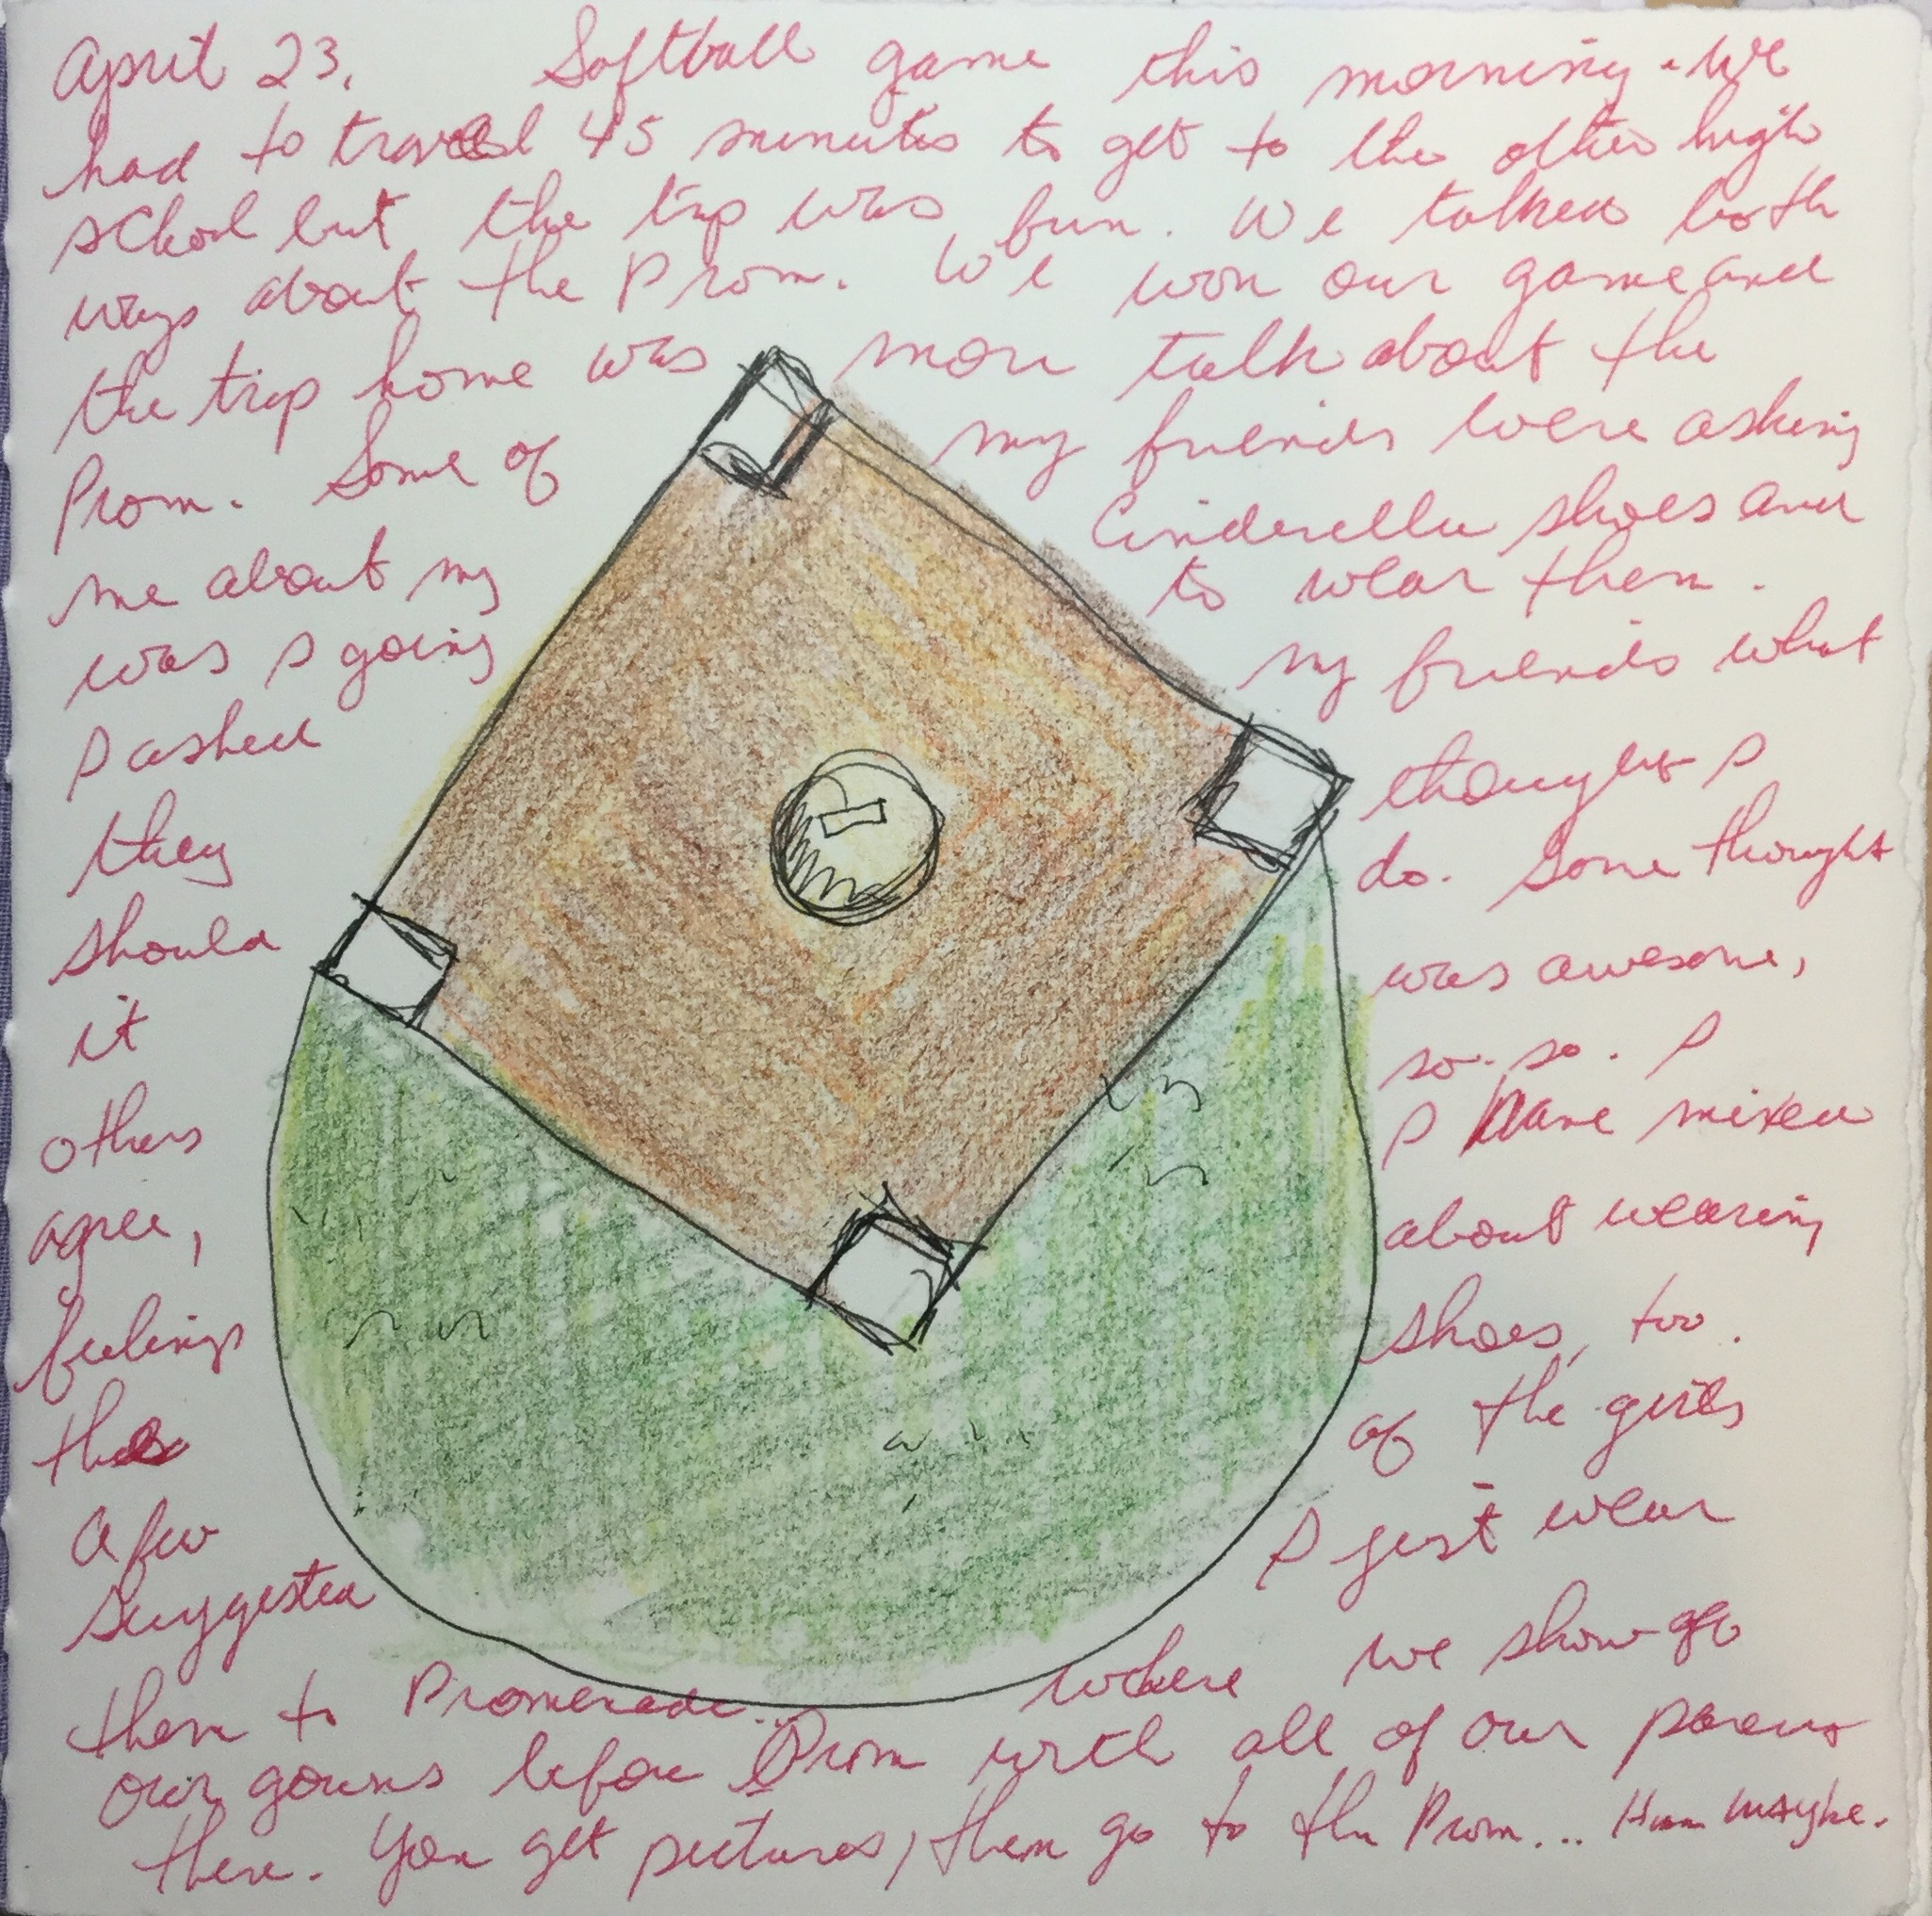 April 23. Softball game this morning. We
had to travel 45 minutes to get to the other high
school but the trip was fun. We talked both
ways about the Prom. We won our game and
the trip home was more talk about the
Prom. Some of my friends were asking
me about my Cinderella shoes and
was I going to wear them.
I asked my friends what
they thought I
should do. Some thought
it was awesome,
others so-so. I
agree, I have mixed
feelings about wearing
the shoes, too.
A few of the girls
suggested I just wear
them to Promenade... where we show off
our gowns before Prom with all of our parents
there. You get pictures, then go to the Prom... Hmm maybe.